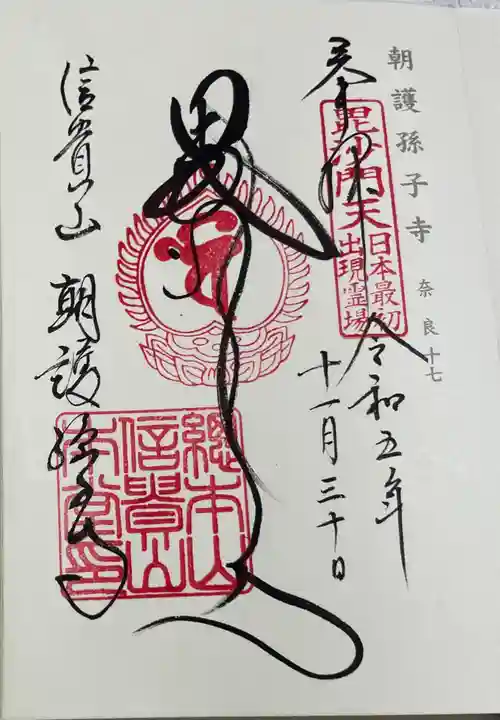 朝護孫子寺 奈良十七
奉拝
毘沙門天
日本最初
出現霊場
令和五年
十一月三十日
信貴山 朝護孫子寺
總本山
信貴山
本堂印